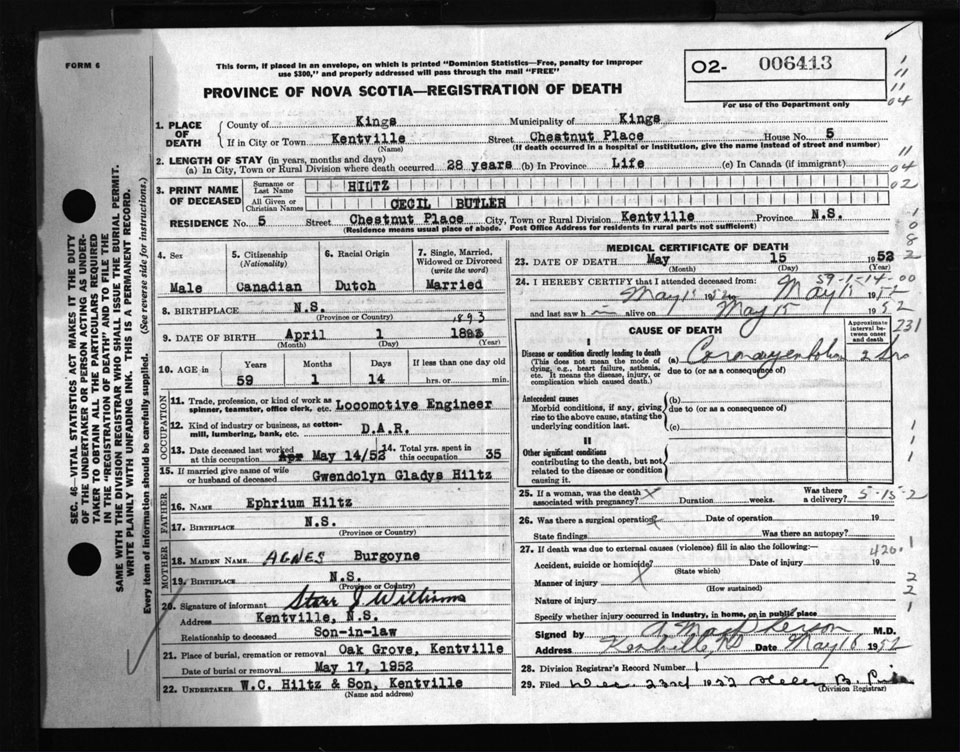 FORM 6
This form, if placed in an envelope, on which is printed "Dominion Statistics—Free, penalty for improper
use $300," and properly addressed will pass through the mail "FREE"
O2- 006413
For use of the Department only
PROVINCE OF NOVA SCOTIA—REGISTRATION OF DEATH
1
11
11
04
1. PLACE OF DEATH
County of Kings Municipality of Kings
If in City or Town Kentville Street Chestnut Place House No. 5
(Name) (If death occurred in a hospital or institution, give the name instead of street and number)
2. LENGTH OF STAY (in years, months and days)
(a) In City, Town or Rural Division where death occurred 28 years (b) In Province Life (c) In Canada (if immigrant)
11
04
02
3. PRINT NAME OF DECEASED
Surname or Last Name HILTZ
All Given or Christian Names CECIL BUTLER
RESIDENCE No. 5 Street Chestnut Place City, Town or Rural Division Kentville Province N.S.
(Residence means usual place of abode. Post Office Address for residents in rural parts not sufficient)
1
0
8
2
4. Sex
Male
5. Citizenship (Nationality)
Canadian
6. Racial Origin
Dutch
7. Single, Married, Widowed or Divorced (write the word)
Married
8. BIRTHPLACE N.S.
(Province or Country)
1893
9. DATE OF BIRTH April 1
(Month) (Day) (Year)
10. AGE in
Years Months Days If less than one day old
59 1 14 hrs. or min.
OCCUPATION
11. Trade, profession, or kind of work as
spinner, teamster, office clerk, etc. Locomotive Engineer
12. Kind of industry or business, as cotton-
mill, lumbering, bank, etc. D.A.R.
13. Date deceased last worked
at this occupation Apr May 14/52
14. Total yrs. spent in
this occupation 35
15. If married give name of wife
or husband of deceased Gwendolyn Gladys Hiltz
FATHER
16. NAME Ephrium Hiltz
17. BIRTHPLACE N.S.
(Province or Country)
MOTHER
18. MAIDEN NAME AGNES Burgoyne
19. BIRTHPLACE N.S.
(Province or Country)
20. Signature of informant Starr J Williams
Address Kentville, N.S.
Relationship to deceased Son-in-law
21. Place of burial, cremation or removal Oak Grove, Kentville
Date of burial or removal May 17, 1952
22. UNDERTAKER W.C. Hiltz & Son, Kentville
(Name and address)
MEDICAL CERTIFICATE OF DEATH
23. DATE OF DEATH May 15 1952
(Month) (Day) (Year)
59-1-14-00
24. I HEREBY CERTIFY that I attended deceased from:
May 15 1952 May 15 1952
and last saw h im alive on May 15 1952
CAUSE OF DEATH
Approximate interval between onset and death
231
I
Disease or condition directly leading to death
(This does not mean the mode of
dying, e.g., heart failure, asthenia,
etc. It means the disease, injury, or
complication which caused death.)
(a)
due to (or as a consequence of)
Antecedent causes
Morbid conditions, if any, giving
rise to the above cause, stating the
underlying condition last.
(b)
due to (or as a consequence of)
(c)
II
Other significant conditions
contributing to the death, but not
related to the disease or condition
causing it.
1
1
25. If a woman, was the death
associated with pregnancy? Duration weeks. Was there a delivery?
5-15-2
26. Was there a surgical operation? Date of operation 19
State findings Was there an autopsy?
27. If death was due to external causes (violence) fill in also the following:—
420.1
Accident, suicide or homicide? Date of injury 19
(State which)
Manner of injury
(How sustained)
Nature of injury
2
2
1
Specify whether injury occurred in industry, in home, or in public place
Signed by M.D.
Address Kentville, NS Date May 16 1952
28. Division Registrar's Record Number 1
29. Filed Dec. 23rd 1952 Helen B.
(Division Registrar)
SEC. 46—VITAL STATISTICS ACT MAKES IT THE DUTY
OF THE UNDERTAKER OR PERSON ACTING AS UNDER-
TAKER TO OBTAIN ALL THE PARTICULARS REQUIRED
IN THE "REGISTRATION OF DEATH" AND TO FILE THE
SAME WITH THE DIVISION REGISTRAR WHO SHALL ISSUE THE BURIAL PERMIT.
WRITE PLAINLY WITH UNFADING INK. THIS IS A PERMANENT RECORD.
Every item of information should be carefully supplied. (See reverse side for instructions.)